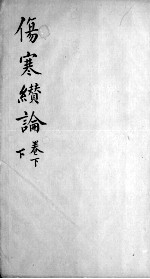 傷寒纘論
卷下
下